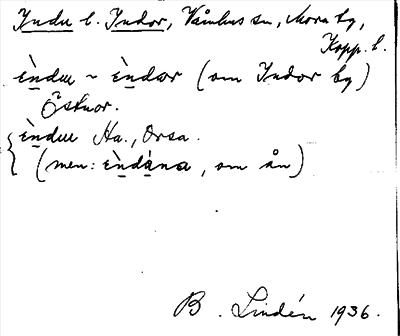 Indu l. Indor, Våmhus sn, Mora bg,
Kopp. l.
èndu ~ èndor (om Indor by)
Östnor.
èndu Ha., Orsa.
(men: èndàna, om ån)
B. Lindén 1936.